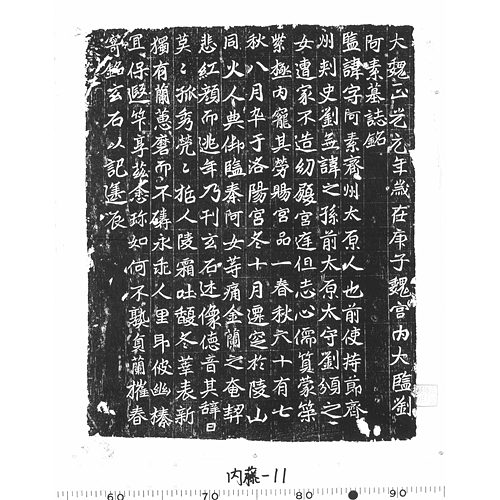 大魏正光元年歲在庚子魏宮內大監劉
阿素墓誌銘
監諱字阿素齊州太原人也前使持節齊
州刾史劉无諱之孫前太原太守劉頒之
女遭家不造幼履宮庭但志心儒質蒙策
紫極內寵其勞賜宮品一春秋六十有七
秋八月卒于洛陽宮冬十月遷窆於陵山
同火人典御監秦阿女等痛金蘭之奄契
悲紅顏而逃年乃刊玄石述像德音其辞曰
莫〻孤秀煢〻拡人陵霜吐馥冬華表新
獨有蘭蕙磨而不磷永乖人里耳彼幽榛
宜保遐笇享茲悆珎如何不
寘蘭摧春
寄銘玄石以記遷辰
内藤-11
60 70 80 90